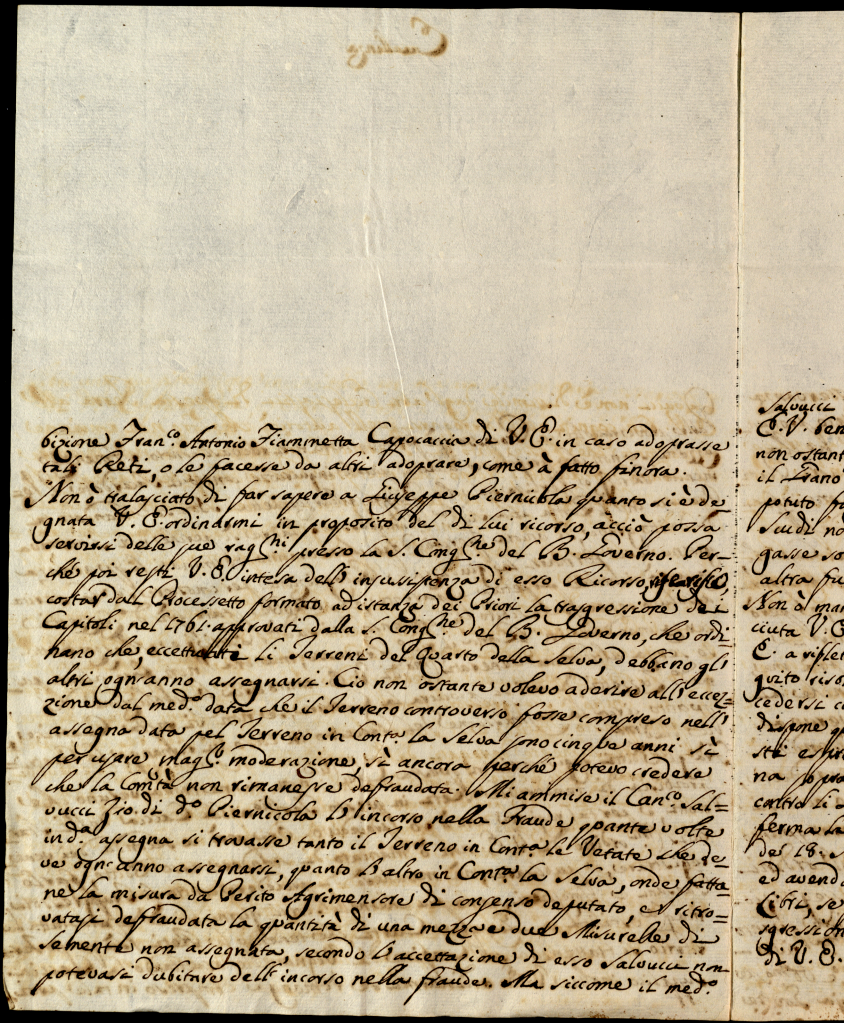 bizione Fran.co Antonio Fiammetta Capocaccia di V. E. in caso adoprasse
tali Reti, o le facesse da altri adoprare, come à fatto finora.
Non ò tralasciato di far sapere a Giuseppe Piernicola quanto si è de=
gnata V. E. ordinarmi in proposito del di lui ricorso, acciò possa
servirsi delle sue rag.ni presso la S. Cong.ne del B. Governo. Per=
chè poi resti V. E. intesa dell' insussistenza di esso Ricorso,
costar dal Processetto formato ad istanza dei Priori la trasgressione dei
Capitoli nel 1761. approvati dalla S. Cong.ne del B. Governo, che ordi=
nano che, eccettuati li Terreni del Quarto della Selva, debbano gl'
altri ogn'anno assegnarsi. Cio non ostante volevo aderire all' eccez=
zione dal med.o data che il Terreno controverso fosse compreso nell'
assegna data pel Terreno in Cont.a la Selva sono cinque anni sì
per usare magg.r moderazione, sì ancora perchè potevo credere
che la Com.tà non rimanesse defraudata. Mi ammise il Can.co Sal=
vucci Zio di d.o Piernicola l' incorso nella Fraude quante volte
in d.a assegna si trovasse tanto il Terreno in Cont.a le Vetate che de=
ve ogn'anno assegnarsi, quanto l' altro in Cont.a la Selva, onde fatta=
ne la misura da Perito Agrimensore di consenso deputato, e ritro=
vatasi defraudata la quantità di una mezza e due Misurelle di
Semente non assegnata, secondo l' accettazione di esso Salvucci non
potevasi dubitare dell' incorso nella fraude. Ma siccome il med.o
Salvucci
E. V. ben
non ostant
il
potuto
Sudi no
gasse so
altra fu
Non ò man
ciuta V. E
E. a riflet
quito riso
cedersi c
dispone qu
sti espr
na sopra
contro li
ferma la
de 18. S
ed avend
Libri, se
sgression
di V. E.